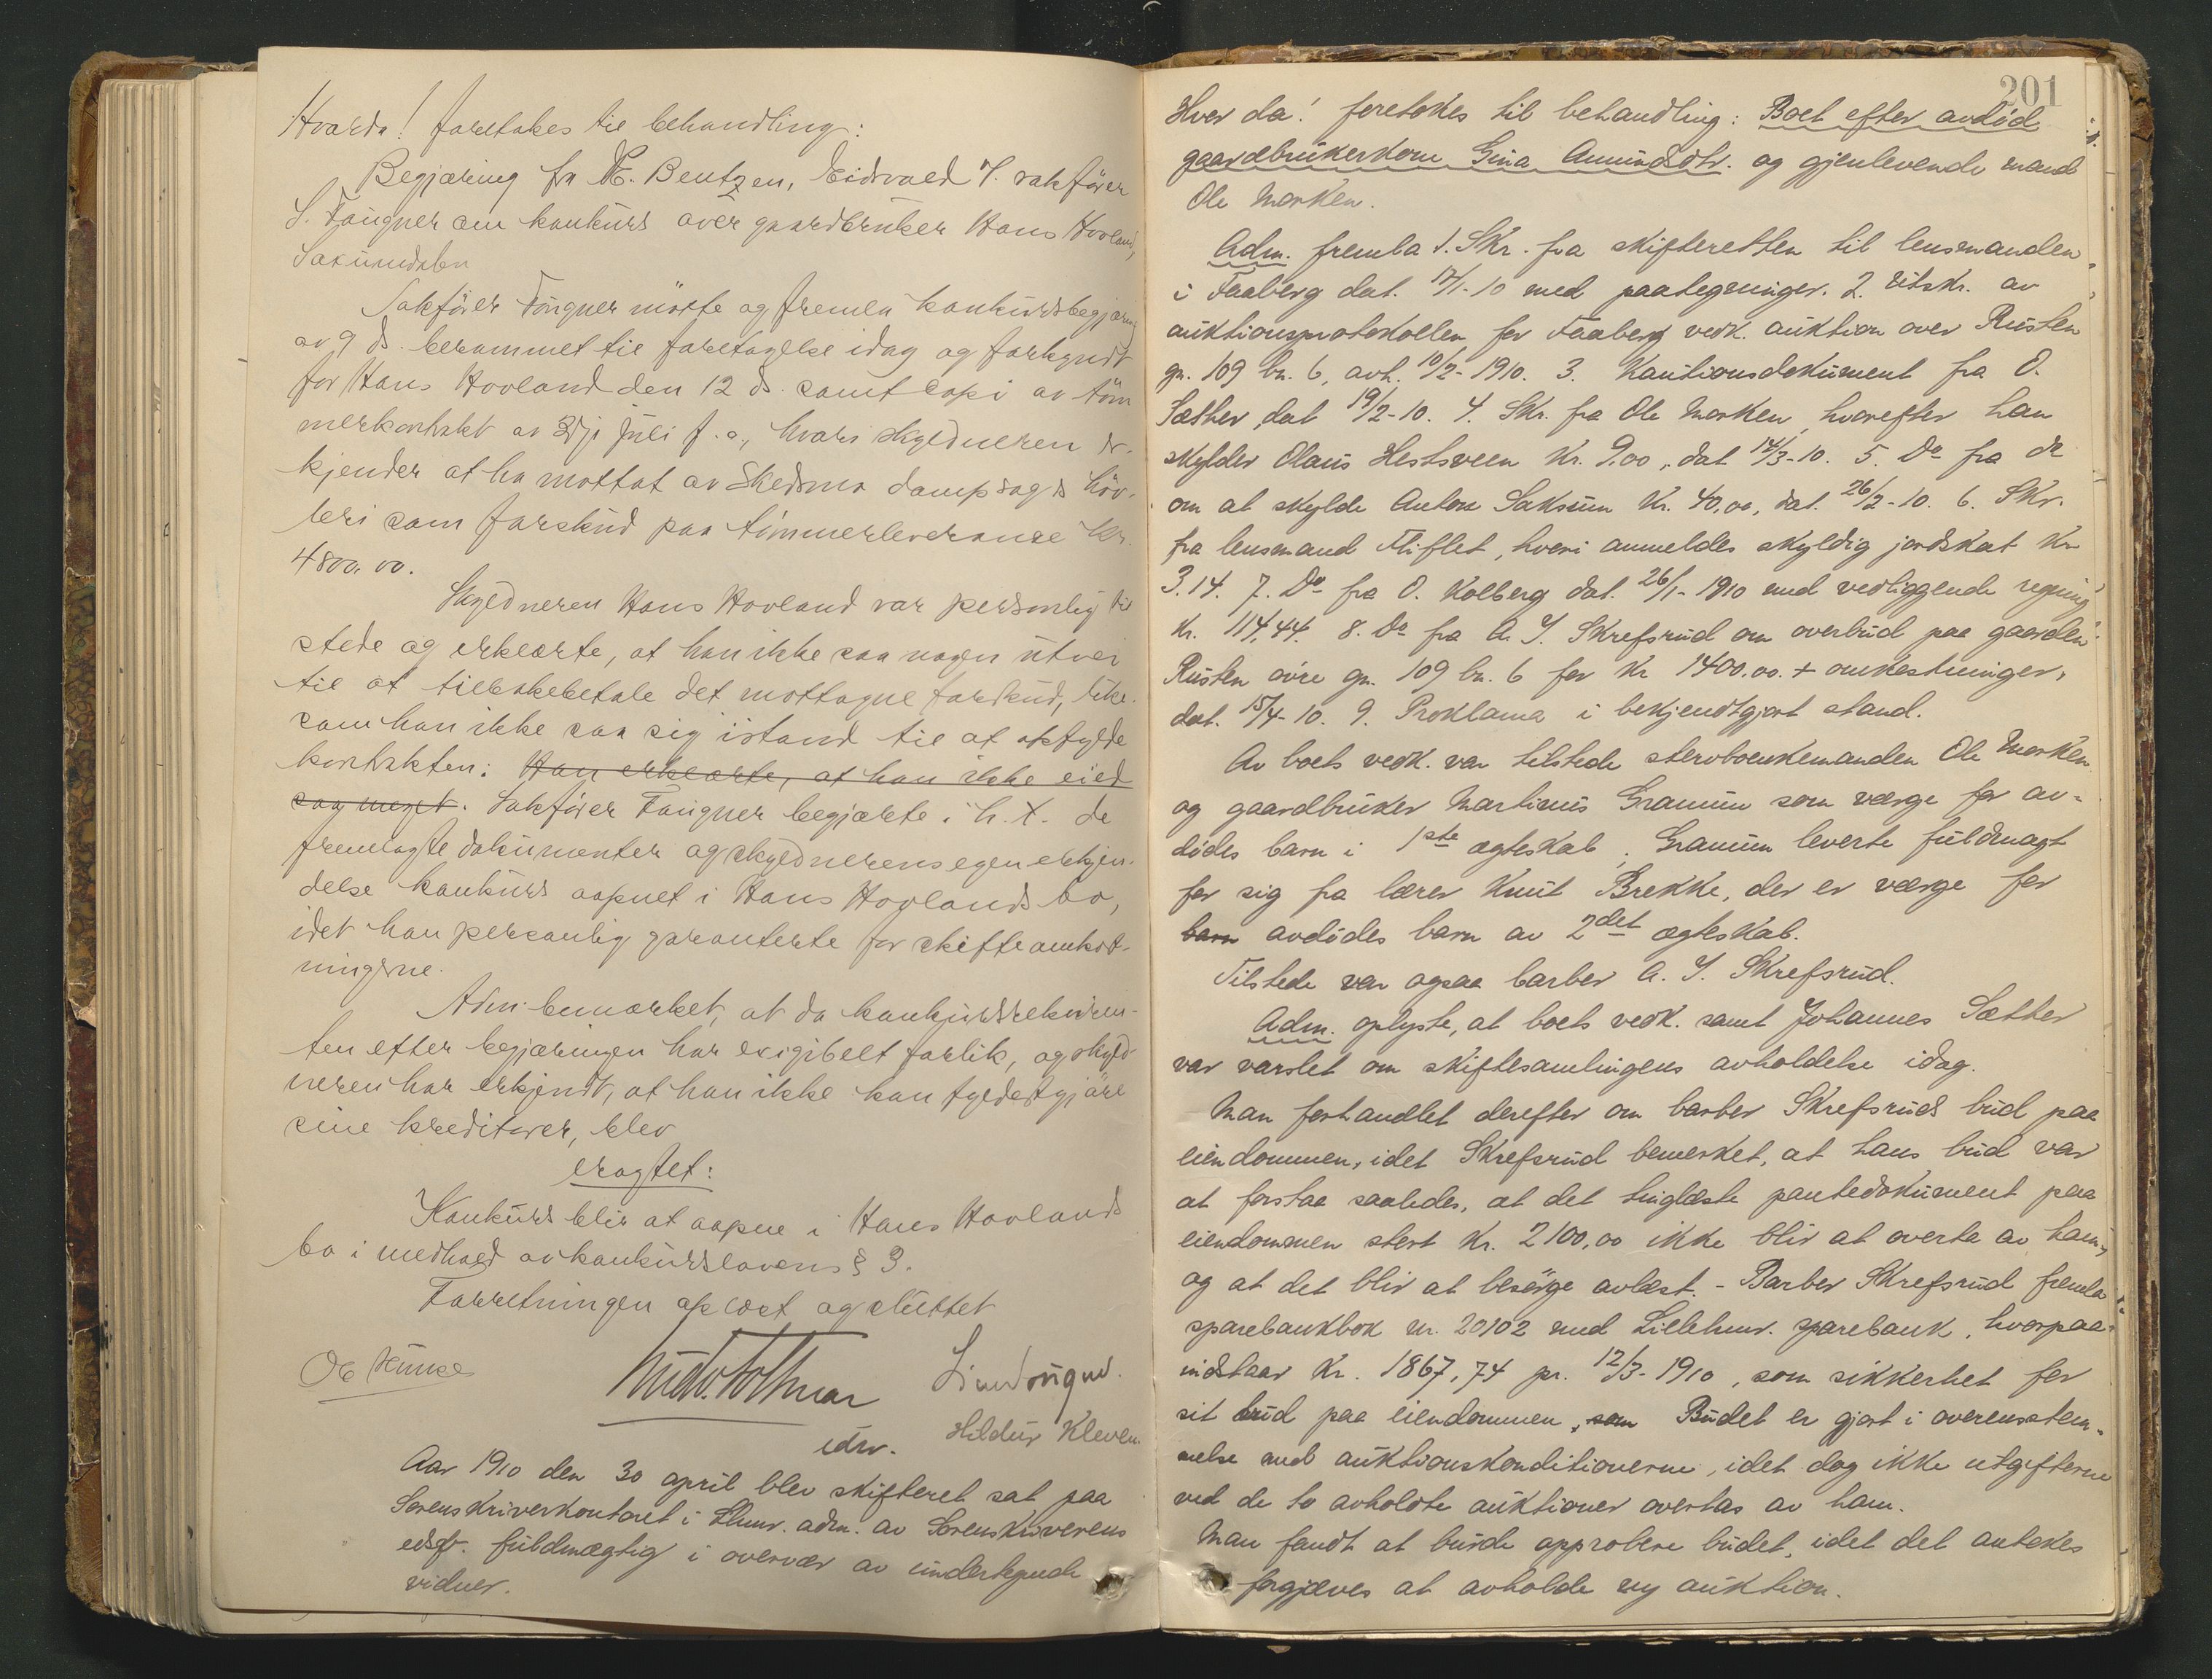 Hvorda! foretakes til behandling:
Begjæring fra N. E. Bentzen, Eidsvold v. sakfører
S. Fougner om konkurs over gaardbruker Hans Hovland,
Saxumdalen
Sakfører Fougner mötte og fremla konkursbegjæring
av 9 ds. berammet til foretagelse idag og forkyndt
for Hans Hovland den 12 ds. samt copi av töm
merkontrakt av 31 juli f. a., hvori skyldneren er-
kjender at ha mottat av Skedsmo dampsag & höv-
leri som forskud paa tömmerleveranse kr.
4800.00.
Skyldneren Hans Hovland var personlig til
stede og erklærte, at han ikke saa nogen utvei
til at tilbakebetale det mottagne forskud, like-
som han ikke saa sig istand til at opfylde
kontrakten. Han erklærte, at han ikke eied
saa meget. Sakfører Fougner begjærte i h. t. de
fremlagte dokumenter og skyldnerens egen erkjen-
delse konkurs aapnet i Hans Hovlands bo,
idet han personlig garanterte for skifteomkost-
ningerne.
Adm. bemærket, at da konkursrekviren-
ten efter begjæringen har exigibelt forlik, og skyld-
neren har erkjendt, at han ikke kan fyldestgjöre
sine kreditorer, blev
eragtet:
Konkurs blir at aapne i Hans Hovlands
bo i medhold av konkurslovens § 3.
Forretningen oplæst og sluttet
Hildur Kleven.
edsv.
Aar 1910 den 30 april blev skifteret sat paa
Sorenskriverkontoret i Lhmr. adm. av Sorenskriverens
edsf. fuldmægtig i overvær av undertegnede
vidner.
201
Hvor da! foretokes til behandling: Boet efter avdöd
gaardbrukerkone Gina Amundsdtr. og gjenlevende mand
Ole Morken.
Adm. fremla 1. Skr. fra skifteretten til lensmanden
i Faaberg dat. 17/1-10 med paategninger. 2. Utskr. av
auktionsprotokollen for Faaberg vedk. auktion over Rusten
gn. 109 bn. 6, avh. 10/2-1910. 3. Kautionsdokument fra O.
Sæther, dat 19/2-10. 4. Skr. fra Ole Morken, hvorefter han
skylder Olaus Hestsveen Kr. 9.00, dat 14/3-10. 5. Do fra do
om at skylde Anton Saksum Kr. 40.00, dat. 26/2-10. 6. Skr.
fra lensmand Fliflet, hvori anmeldes skyldig jordskat Kr
3.14. 7. Do fra O. Kolberg dat. 26/1-1910 med vedliggende regning
Kr. 114,44. 8. Do fra A. J. Skrefsrud om overbud paa gaarden
Rusten övre gn. 109 bn. 6 for Kr 1400.00 + omkostninger,
dat. 15/4-10. 9. Proklama i bekjendtgjort stand.
Av boets vedk. var tilstede stervboenkemanden Ole Morken
og gaardbruker Martinus Gramum som værge for av-
dödes barn i 1ste egteskab. Gramum leverte fuldmagt
for sig fra lærer Knut Brekke, der er værge for
barn avdödes barn av 2det egteskab.
Tilstede var ogsaa barber A. J. Skrefsrud.
Adm. oplyste, at boets vedk. samt Johannes Sæther
var varslet om skiftesamlingens avholdelse idag.
Man forhandlet derefter om barber Skrefsruds bud paa
eiendommen, idet Skrefsrud bemerket, at hans bud var
at forstaa saaledes, at det tinglæste pantedokument paa
eiendommen stort Kr. 2100,00 ikke blir at overta av ham,
og at det blir at besörge avlæst. - Barber Skrefsrud fremla
sparebankbok nr. 20102 med Lillehmr. sparebank, hvorpaa
indstaar Kr. 1867,74 pr. 12/3-1910, som sikkerhet for
sit bud paa eiendommen, som Budet er gjort i overensstem-
melse med auktionskonditionerne, idet dog ikke utgifterne
ved de to avholdte auktioner overtas av ham.
Man fandt at burde approbere budet, idet det antokes
forgjæves at avholde ny auktion.